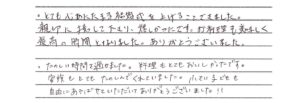 ・とても心あたたまる結婚式を上げることができました。
親けに接して下さり、嬉しかったです。お料理も美味しく
最高の時間となりました。ありがとうございました。
・たのしい時間を過せました。料理もとてもおいしかったです。
家族もとてもたのしんでくれていました。小さい子どもも
自由にあそばせていただいてありがとうございました!!